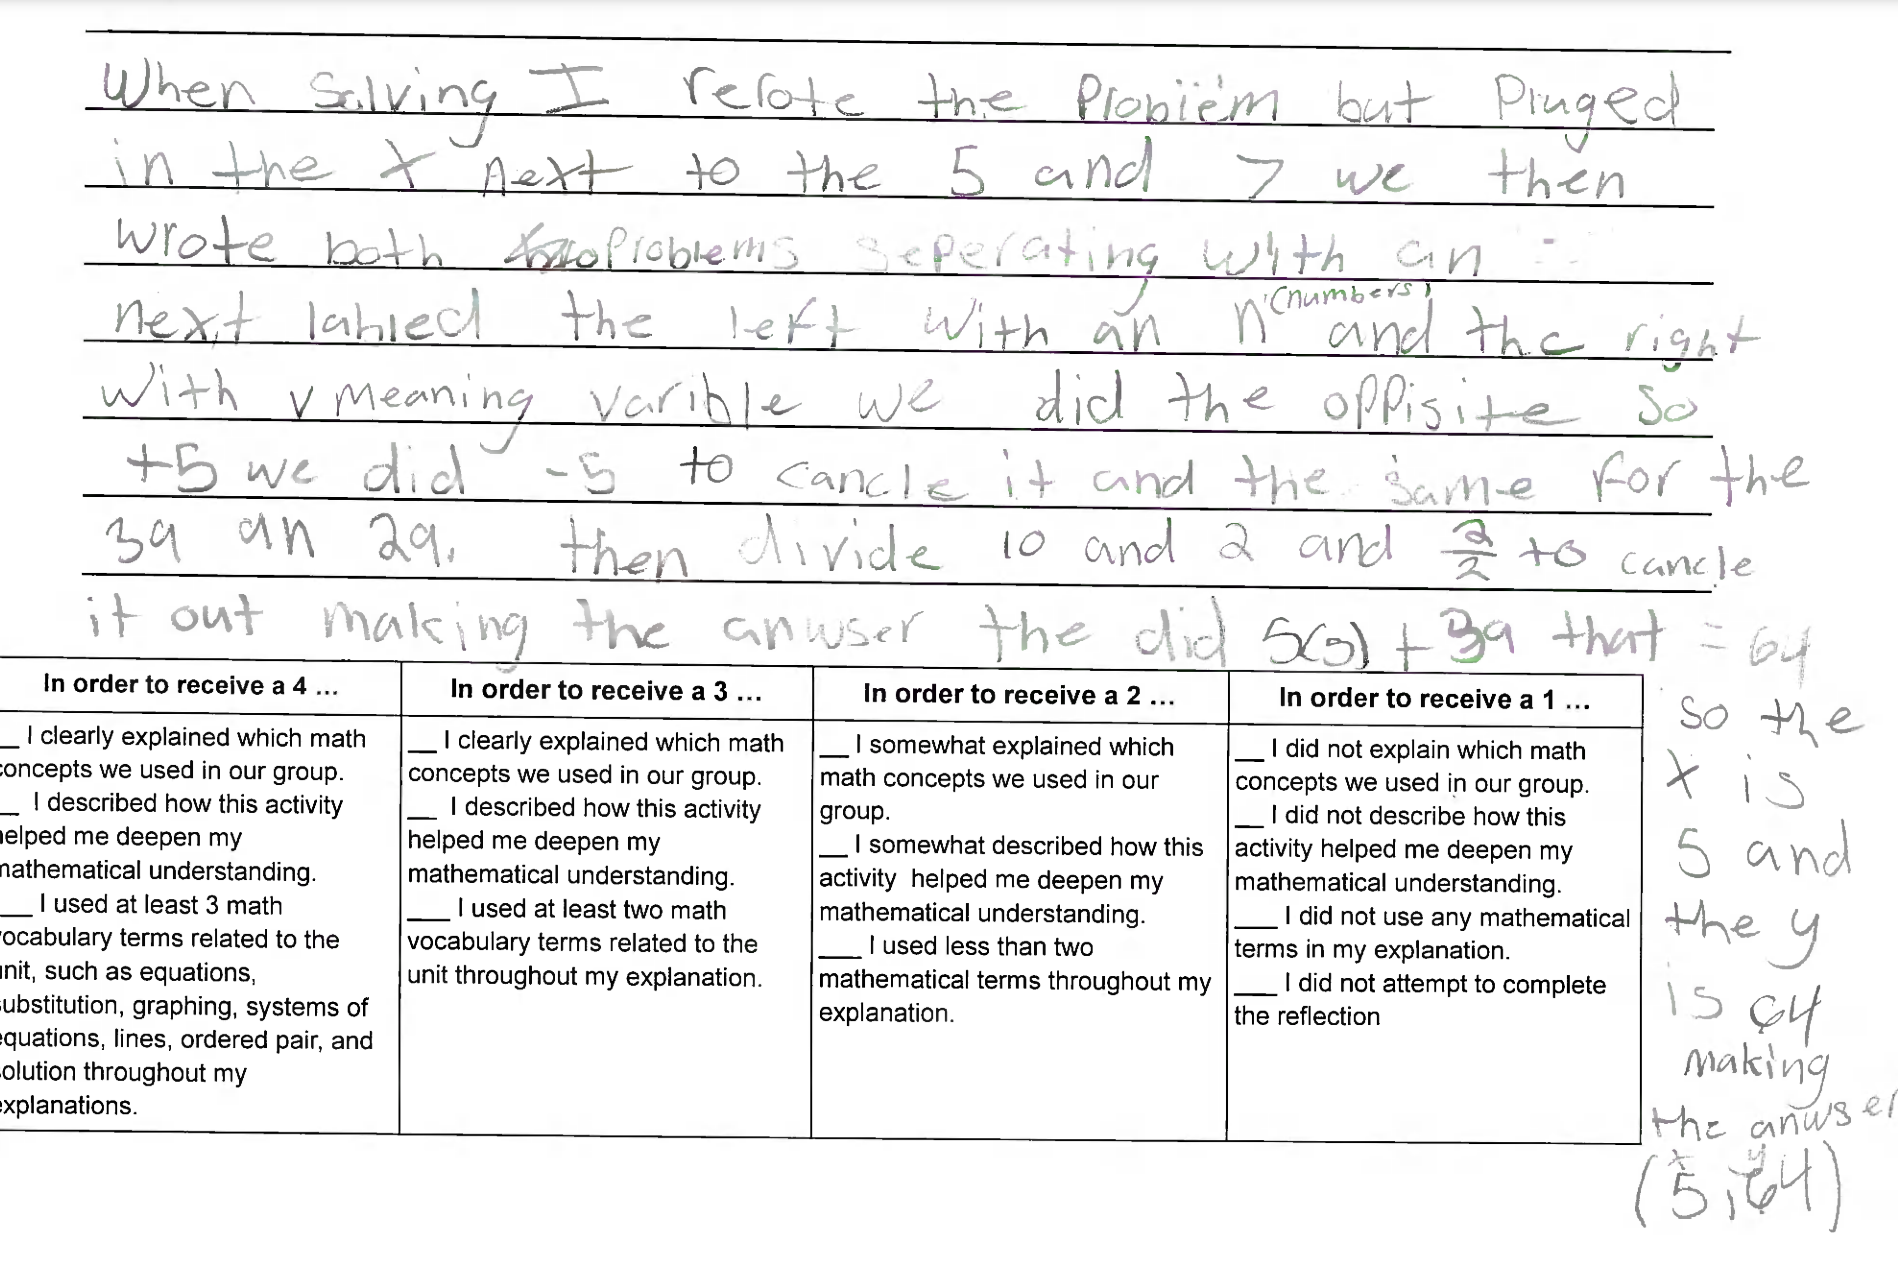 When Solving I rerote the Problem but Pluged
in the X next to the 5 and 7 we then
wrote both Problems seperating with an =
next labled the left with an n (numbers) and the right
with v meaning varible we did the oppisite so
+5 we did -5 to cancle it and the same for the
39 an 29. then divide 10 and 2 and 2/2 to cancle
it out making the anwser the did 5(5) + 39 that = 64
so the
X is
5 and
the y
is 64
making
the anwser
x y
(5,64)
In order to receive a 4 ...
__ I clearly explained which math
concepts we used in our group.
__ I described how this activity
helped me deepen my
mathematical understanding.
___ I used at least 3 math
vocabulary terms related to the
unit, such as equations,
substitution, graphing, systems of
equations, lines, ordered pair, and
solution throughout my
explanations.
In order to receive a 3 ...
__ I clearly explained which math
concepts we used in our group.
__ I described how this activity
helped me deepen my
mathematical understanding.
___ I used at least two math
vocabulary terms related to the
unit throughout my explanation.
In order to receive a 2 ...
__ I somewhat explained which
math concepts we used in our
group.
__ I somewhat described how this
activity helped me deepen my
mathematical understanding.
___ I used less than two
mathematical terms throughout my
explanation.
In order to receive a 1 ...
__ I did not explain which math
concepts we used in our groups.
__ I did not describe how this
activity helped me deepen my
mathematical understanding.
___ I did not use any mathematical
terms in my explanation.
___ I did not attempt to complete
the reflection